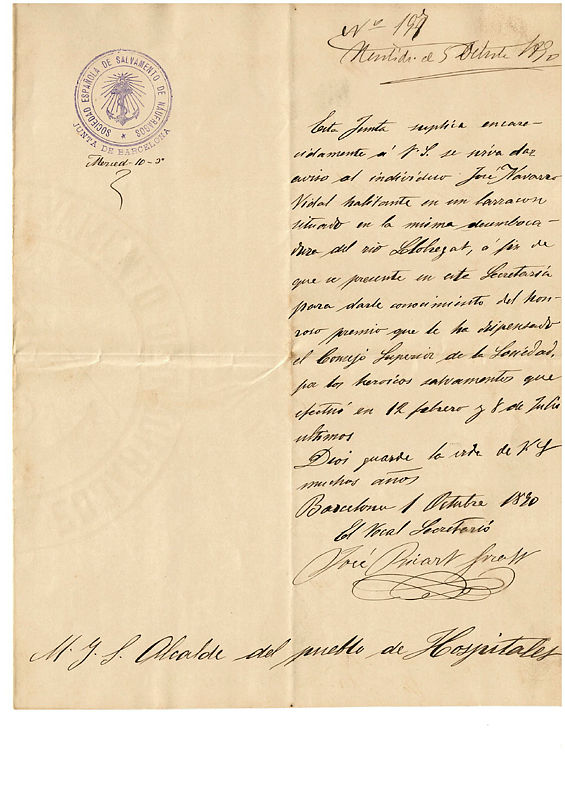 Nº 197
5 Octubre 1890
SOCIEDAD ESPAÑOLA DE SALVAMENTO DE NAUFRAGOS
JUNTA DE BARCELONA
Merced-10-
Esta Junta suplica encare-
cidamente á V.S. se sirva dar
aviso al individuo José Navarro
Vidal habitante en un barracon
situado en la misma desemboca-
dura del rio Llobregat, á fin de
que se presente en esta Secretaría
para darle conocimiento del hon-
roso premio que le ha dispensado
el Consejo Superior de la Sociedad,
por los heroicos salvamentos que
efectuó en 12 febrero y 8 de Julio
ultimos
Dios guarde la vida de V S
muchos años
Barcelona 1 Octubre 1890
El Vocal Secretario
José Ricart
M. I. S. Alcalde del pueblo de Hospitalet